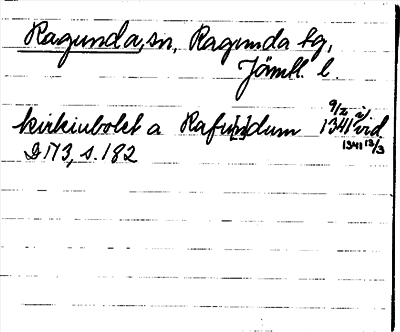 Ragunda, sn, Ragunda tg,
Jämtl. l.
kirkiubolet a Rafu[n]dum 9/2 1341 vid
1341 12/3
DN3, s. 182